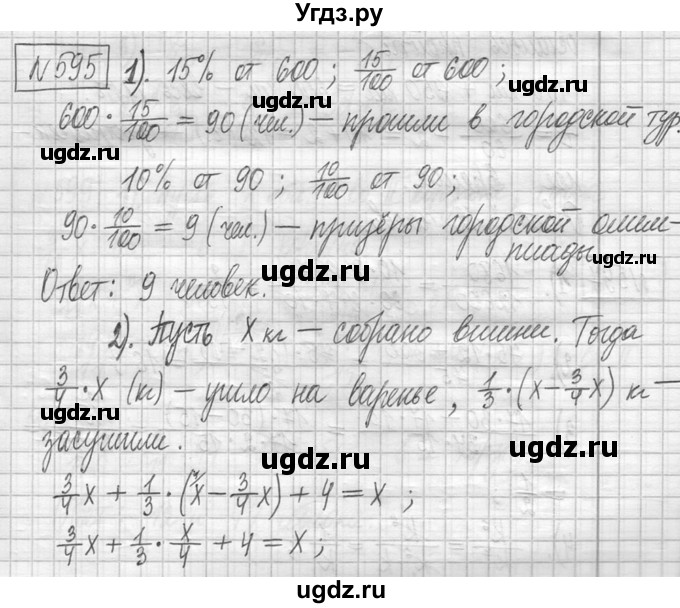 Угдз.ру
№595 1). 15% от 600 ; 15/100 от 600 ;
600 · 15/100 = 90 (чел.) — прошли в городской тур.
10% от 90 ; 10/100 от 90 ;
90 · 10/100 = 9 (чел.) — призёры городской олим-
пиады
Ответ: 9 человек.
2). Пусть x кг — собрано вишни. Тогда
3/4 · x (кг) — ушло на варенье, 1/3 · (x − 3/4 x) кг —
засушили.
3/4 x + 1/3 · (x − 3/4 x) + 4 = x ;
3/4 x + 1/3 · x/4 + 4 = x ;
ugdz.ru
ugdz.ru
ugdz.ru
ugdz.ru
ugdz.ru
ugdz.ru
ugdz.ru
ugdz.ru
ugdz.ru
ugdz.ru
ugdz.ru
ugdz.ru
ugdz.ru